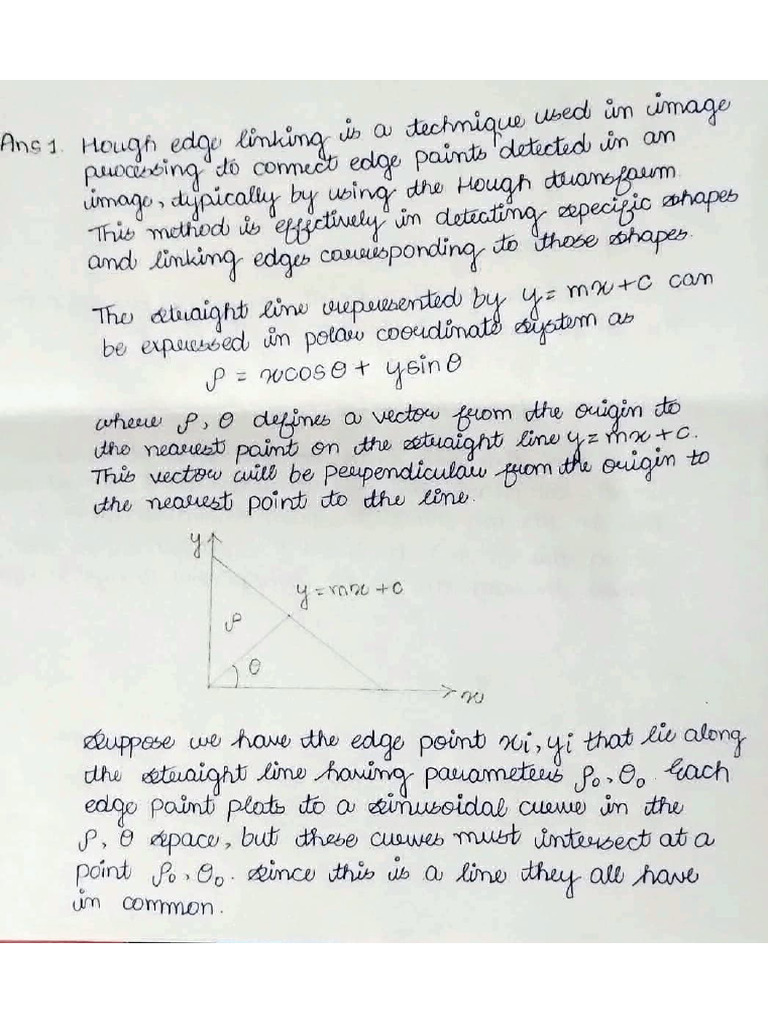 Ans 1. Hough edge linking is a technique used in image
processing to connect edge points detected in an
image, typically by using the Hough transform.
This method is effectively in detecting specific shapes
and linking edges corresponding to those shapes.
The straight line represented by y = mx + c can
be expressed in polar coordinate system as
ρ = xcosθ + ysinθ
where ρ, θ defines a vector from the origin to
the nearest point on the straight line y = mx + c.
This vector will be perpendicular from the origin to
the nearest point to the line.
y
y = mx + c
ρ
θ
x
Suppose we have the edge point xi, yi that lie along
the straight line having parameters ρ₀, θ₀. Each
edge point plots to a sinusoidal curve in the
ρ, θ space, but these curves must intersect at a
point ρ₀, θ₀. Since this is a line they all have
in common.